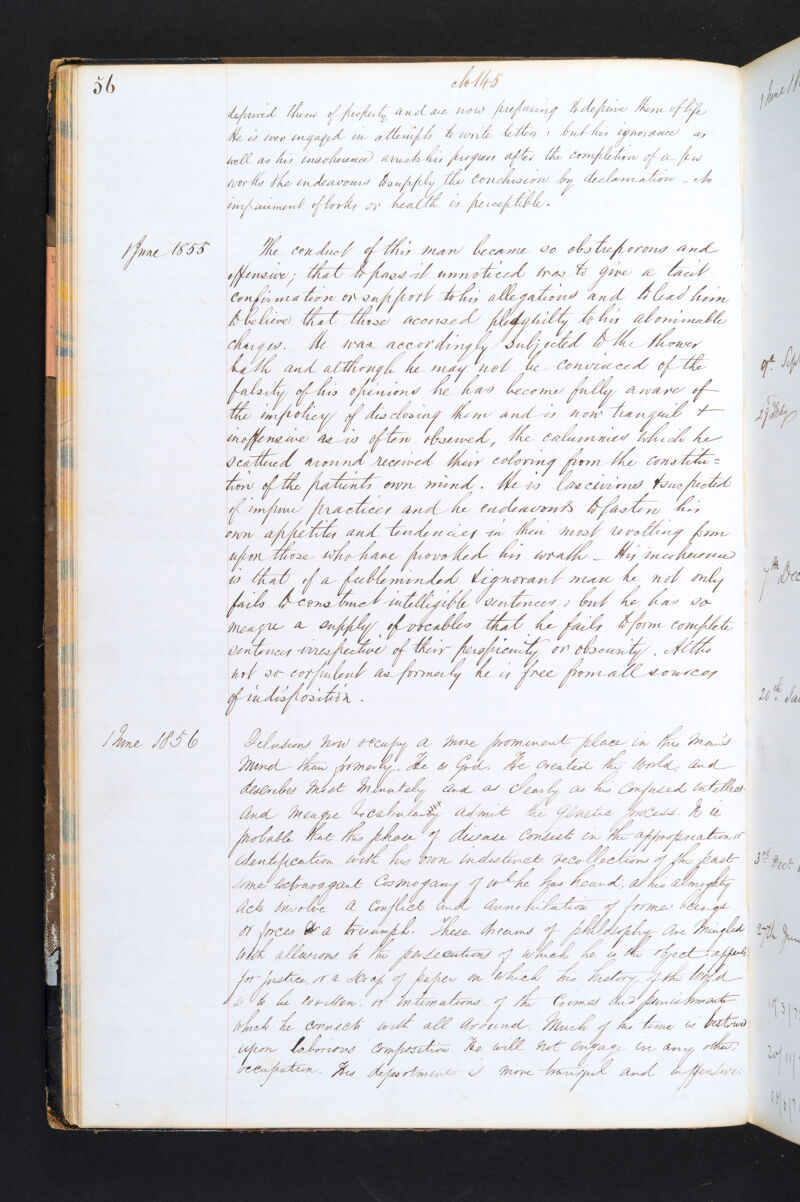 56
No 145
deprived them of property and are now preparing to deprive them of life
He is ever engaged in attempts to write letters: but his ignorance as
well as his incoherence arrests his progress after the completion of a few
works & he endeavours to supply the conclusion by declamation - No
impairment of looks or health is perceptible.
1 June 1855
The conduct of this man became so obstreporous and
offensive; that to pass it unnoticed was to give a tacit
confirmation or support to his allegations and to lead him
to believe that those accursed plead guilty to his abominable
charges. He was accordingly subjected to the shower
bath and although he may not be convinced of the
falsity of his opinions he has become fully aware of
the impolicy of disclosing them and is now tranquil &
inoffensive as is often observed, the calumnies which he
scattered around received their coloring from the constitu=
tion of the patients own mind. He is lascivious & suspected
of impure practices and he endeavours to fasten his
own appetites and tendencies in their most revolting form
upon those who have provoked his wrath - His incoherence
is that of a feebleminded & ignorant man he not only
fails to construct intelligible sentences; but he has so
meagre a supply of vocables that he fails to form complete
sentences irrespective of their perspicuity or obscurity. Altho
not so corpulent as formerly he is free from all sources
of indisposition.
1 June 1856
Delusions now occupy a more prominent place in this man's
mind than formerly. He is God. He created the world, and
describes most minutely and as clearly as his confused intellect
and meagre vocabulary admit the genetic process. It is
probable that this phase of disease consists in the appropriation or
identification with his own indistinct recollections of the past
some extravagant Cosmogany of wh he has heard, as his almighty
acts involve a conflict and annihilation of former beings
or forces & a triumph. These dreams of philosophy are mingled
with allusions to the persecutions of which he is the object; appeals
for justice, or a scrap of paper on which his history of the world
is to be written. or intimations of the crimes and punishments
which he connects with all around. Much of his time is bestowed
upon laborious composition. He will not engage in any other
occupation. His deportment is more tranquil and inoffensive.
1 June 18
9th Sept
29 Feby
7th Dec
20th Jan
3rd Dec
27th June